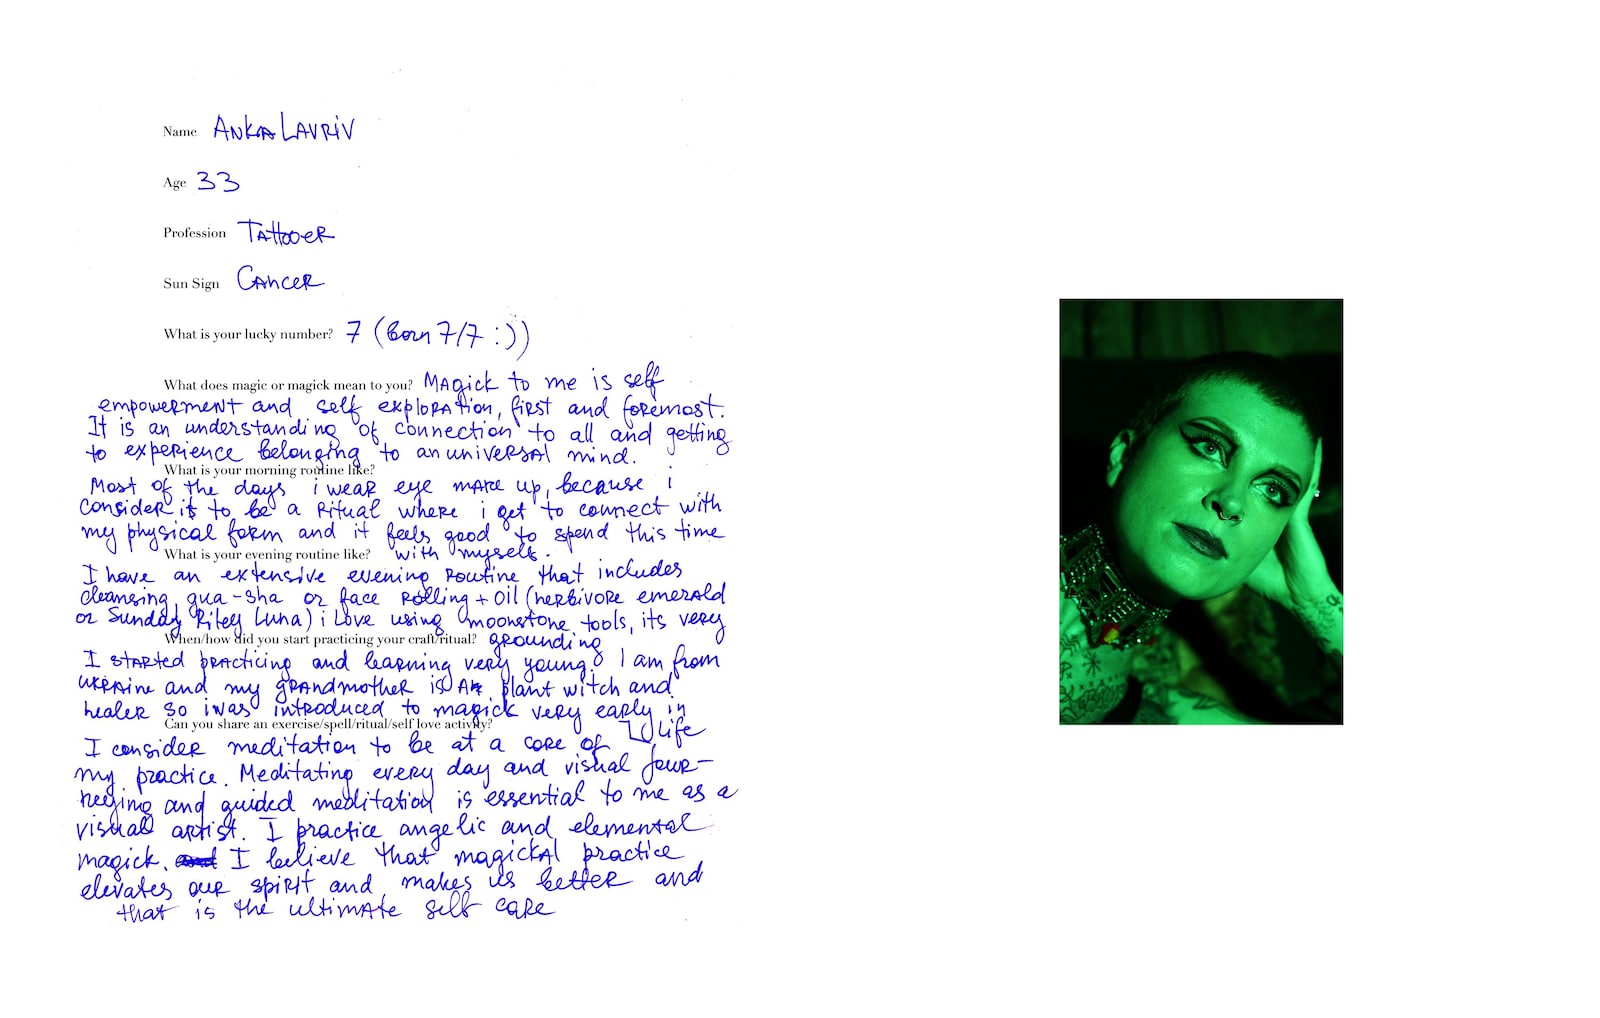 Name ANKA LAVRiV
Age 33
Profession TATTOOER
Sun Sign CANCER
What is your lucky number? 7 (born 7/7 :))
What does magic or magick mean to you? MAgick to me is self
empowerment and self exploration, first and foremost.
It is an understanding of connection to all and getting
to experience belonging to an universal mind.
What is your morning routine like?
Most of the days i wear eye make up, because i
consider it to be a Ritual where i get to connect with
my physical form and it feels good to spend this time
What is your evening routine like? with myself.
I have an extensive evening routine that includes
cleansing, gua-sha or face rolling + oil (herbivore emerald
or Sunday Riley Luna) i love using moonstone tools, its very
When/how did you start practicing your craft/ritual? grounding
I started practicing and learning very young. I am from
Ukraine and my grandmother is a plant witch and
healer so i was introduced to magick very early in
Can you share an exercise/spell/ritual/self love activity? life
I consider meditation to be at a core of
my practice. Meditating every day and visual jour-
neying and guided meditation is essential to me as a
visual artist. I practice angelic and elemental
magick. I believe that magickal practice
elevates our spirit and makes us better and
that is the ultimate self care